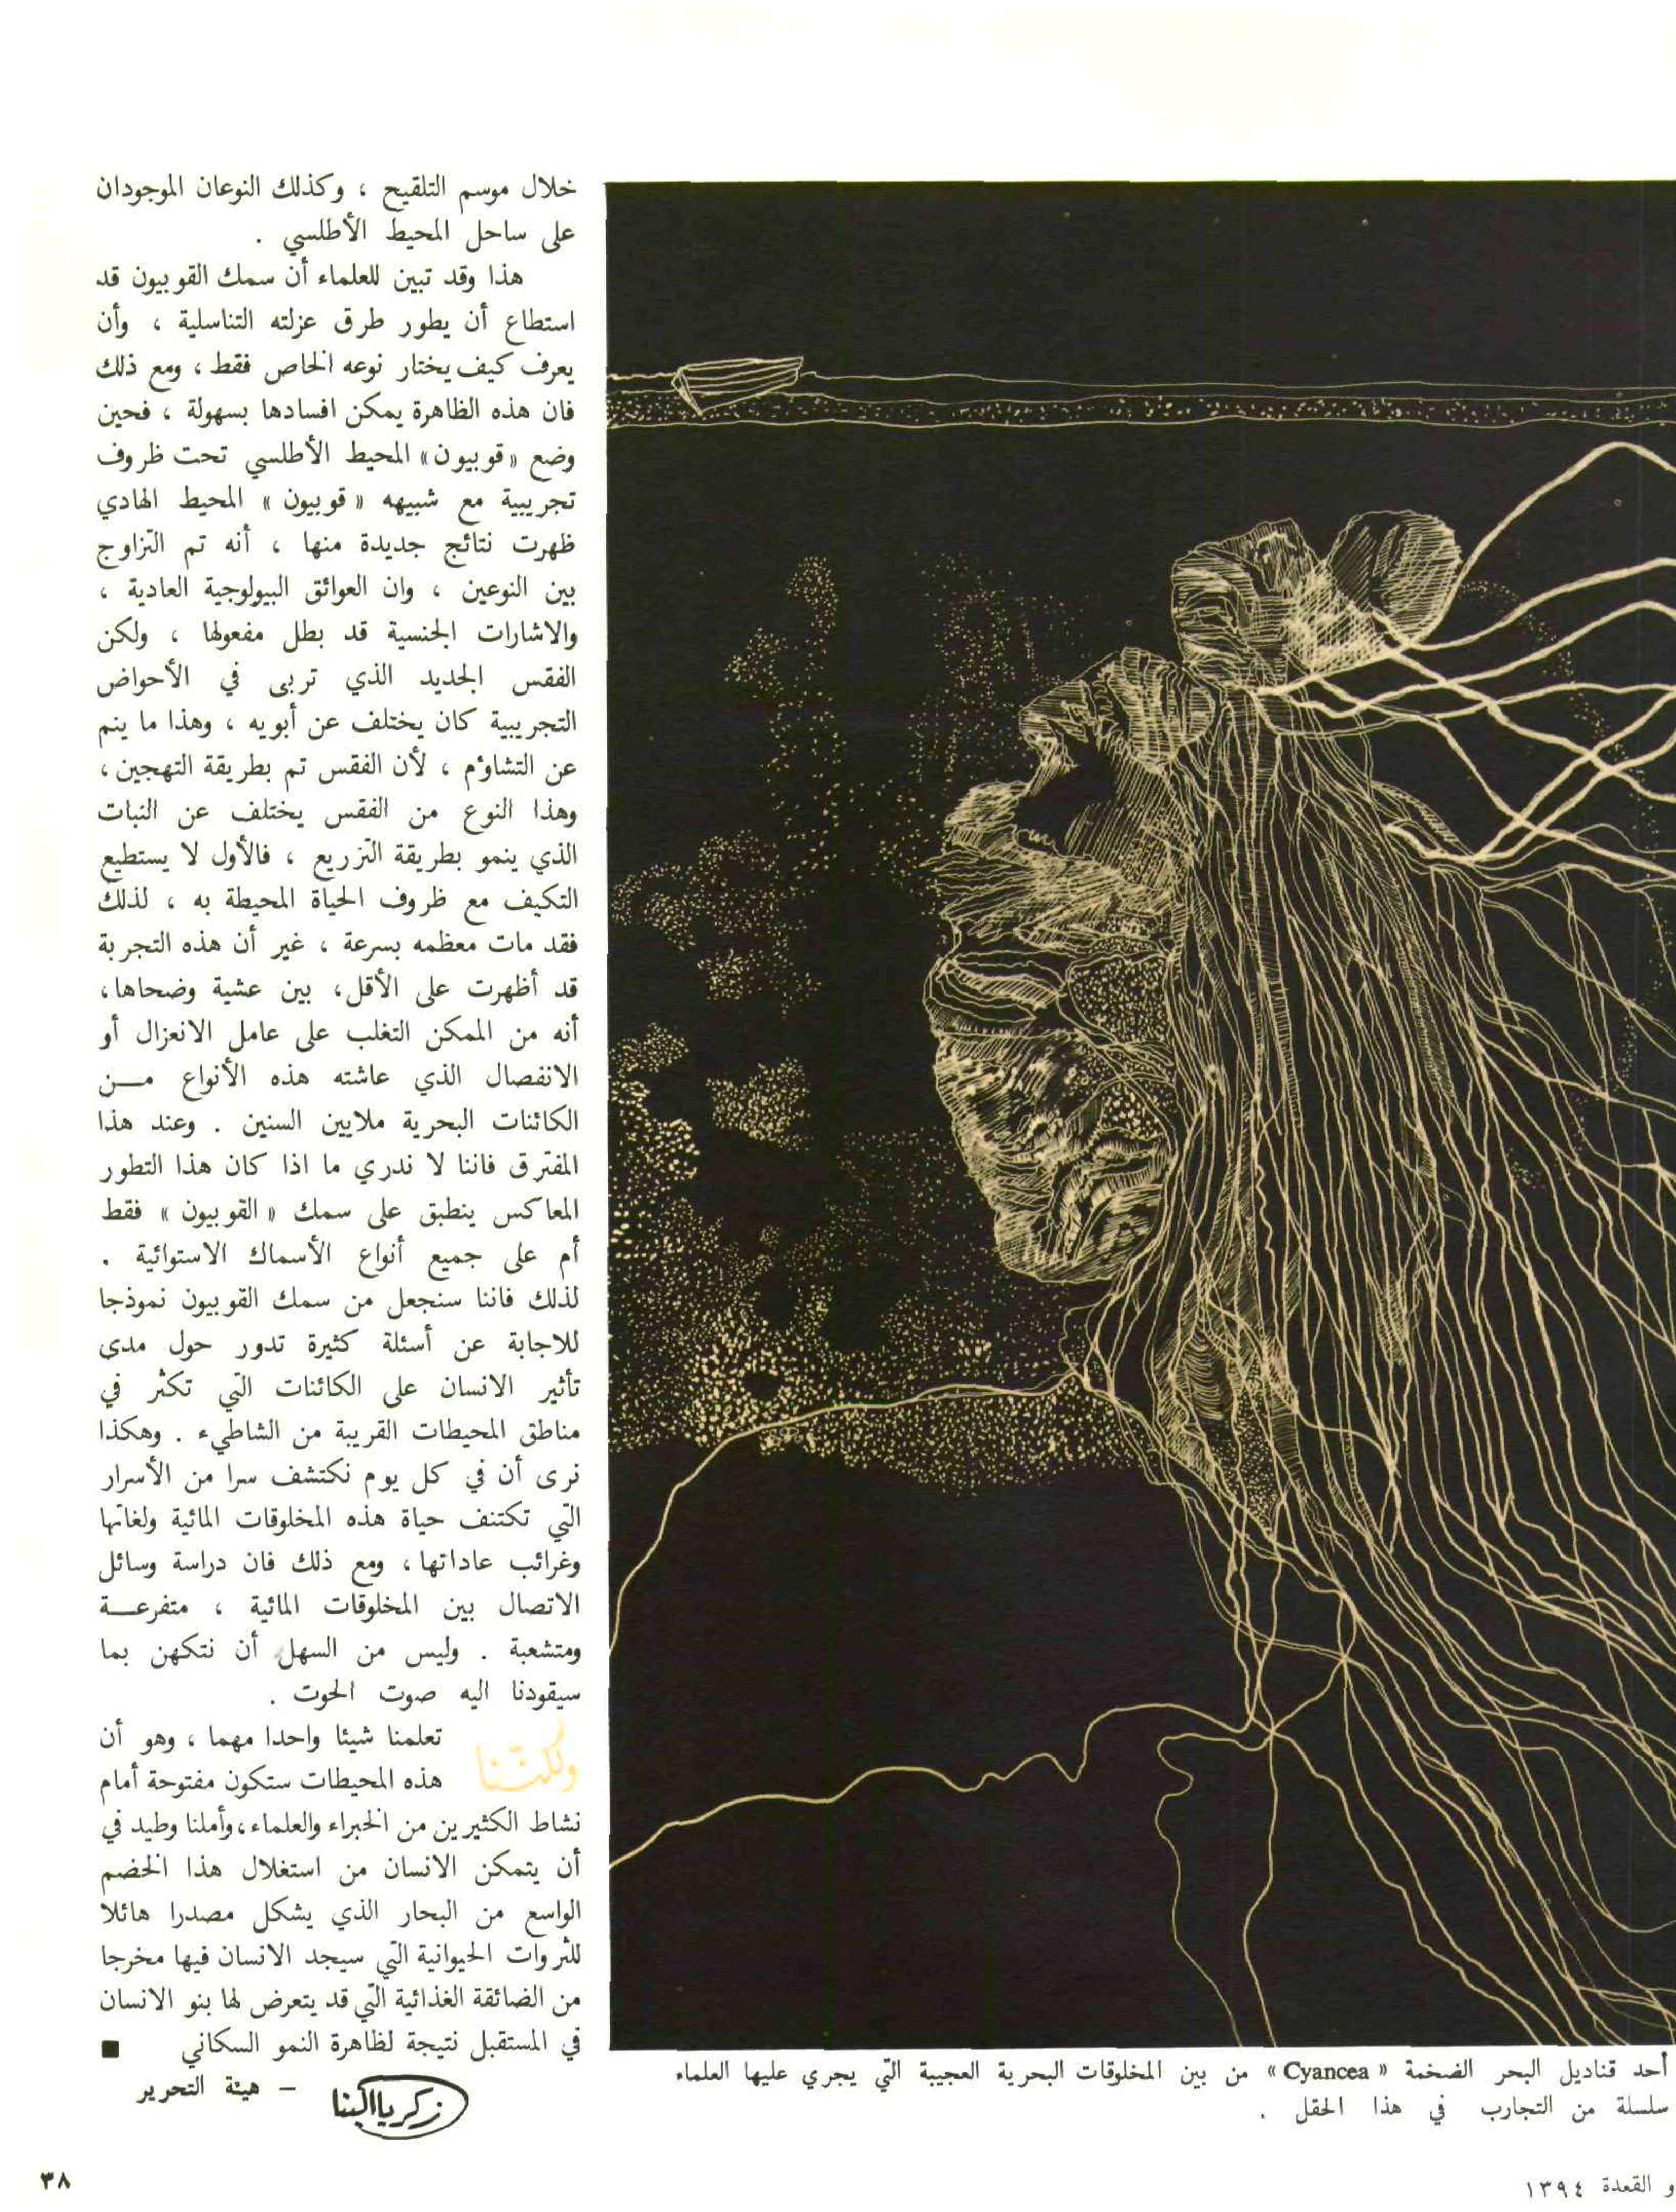 خلال موسم التلقيح ، وكذلك النوعان الموجودان
على ساحل المحيط الأطلسي .
هذا وقد تبين للعلماء أن سمك القوبيون قد
استطاع أن يطور طرق عزلته التناسلية ، وأن
يعرف كيف يختار نوعه الخاص فقط ، ومع ذلك
فان هذه الظاهرة يمكن افسادها بسهولة ، فحين
وضع «قوبيون» المحيط الأطلسي تحت ظروف
تجريبية مع شبيهه «قوبيون» المحيط الهادي
ظهرت نتائج جديدة منها ، أنه تم التزاوج
بين النوعين ، وان العوائق البيولوجية العادية ،
والاشارات الجنسية قد بطل مفعولها ، ولكن
الفقس الجديد الذي تربى في الأحواض
التجريبية كان يختلف عن أبويه ، وهذا ما ينم
عن التشاؤم ، لأن الفقس تم بطريقة التهجين ،
وهذا النوع من الفقس يختلف عن النبات
الذي ينمو بطريقة التزريع ، فالأول لا يستطيع
التكيف مع ظروف الحياة المحيطة به ، لذلك
فقد مات معظمه بسرعة ، غير أن هذه التجربة
قد أظهرت على الأقل، بين عشية وضحاها،
أنه من الممكن التغلب على عامل الانعزال أو
الانفصال الذي عاشته هذه الأنواع مـــن
الكائنات البحرية ملايين السنين . وعند هذا
المفترق فاننا لا ندري ما اذا كان هذا التطور
المعاكس ينطبق على سمك «القوبيون» فقط
أم على جميع أنواع الأسماك الاستوائية .
لذلك فاننا سنجعل من سمك القوبيون نموذجا
للاجابة عن أسئلة كثيرة تدور حول مدى
تأثير الانسان على الكائنات التي تكثر في
مناطق المحيطات القريبة من الشاطىء . وهكذا
نرى أن في كل يوم نكتشف سرا من الأسرار
التي تكتنف حياة هذه المخلوقات المائية ولغاتها
وغرائب عاداتها ، ومع ذلك فان دراسة وسائل
الاتصال بين المخلوقات المائية ، متفرعــة
ومتشعبة . وليس من السهل أن نتكهن بما
سيقودنا اليه صوت الحوت .
ولكنّنا تعلمنا شيئا واحدا مهما ، وهو أن
هذه المحيطات ستكون مفتوحة أمام
نشاط الكثيرين من الخبراء والعلماء، وأملنا وطيد في
أن يتمكن الانسان من استغلال هذا الخضم
الواسع من البحار الذي يشكل مصدرا هائلا
للثروات الحيوانية التي سيجد الانسان فيها مخرجا
من الضائقة الغذائية التي قد يتعرض لها بنو الانسان
في المستقبل نتيجة لظاهرة النمو السكاني ■
زكريا البنا – هيئة التحرير
أحد قناديل البحر الضخمة «Cyancea» من بين المخلوقات البحرية العجيبة التي يجري عليها العلماء
سلسلة من التجارب في هذا الحقل .
و القعدة ١٣٩٤
٣٨